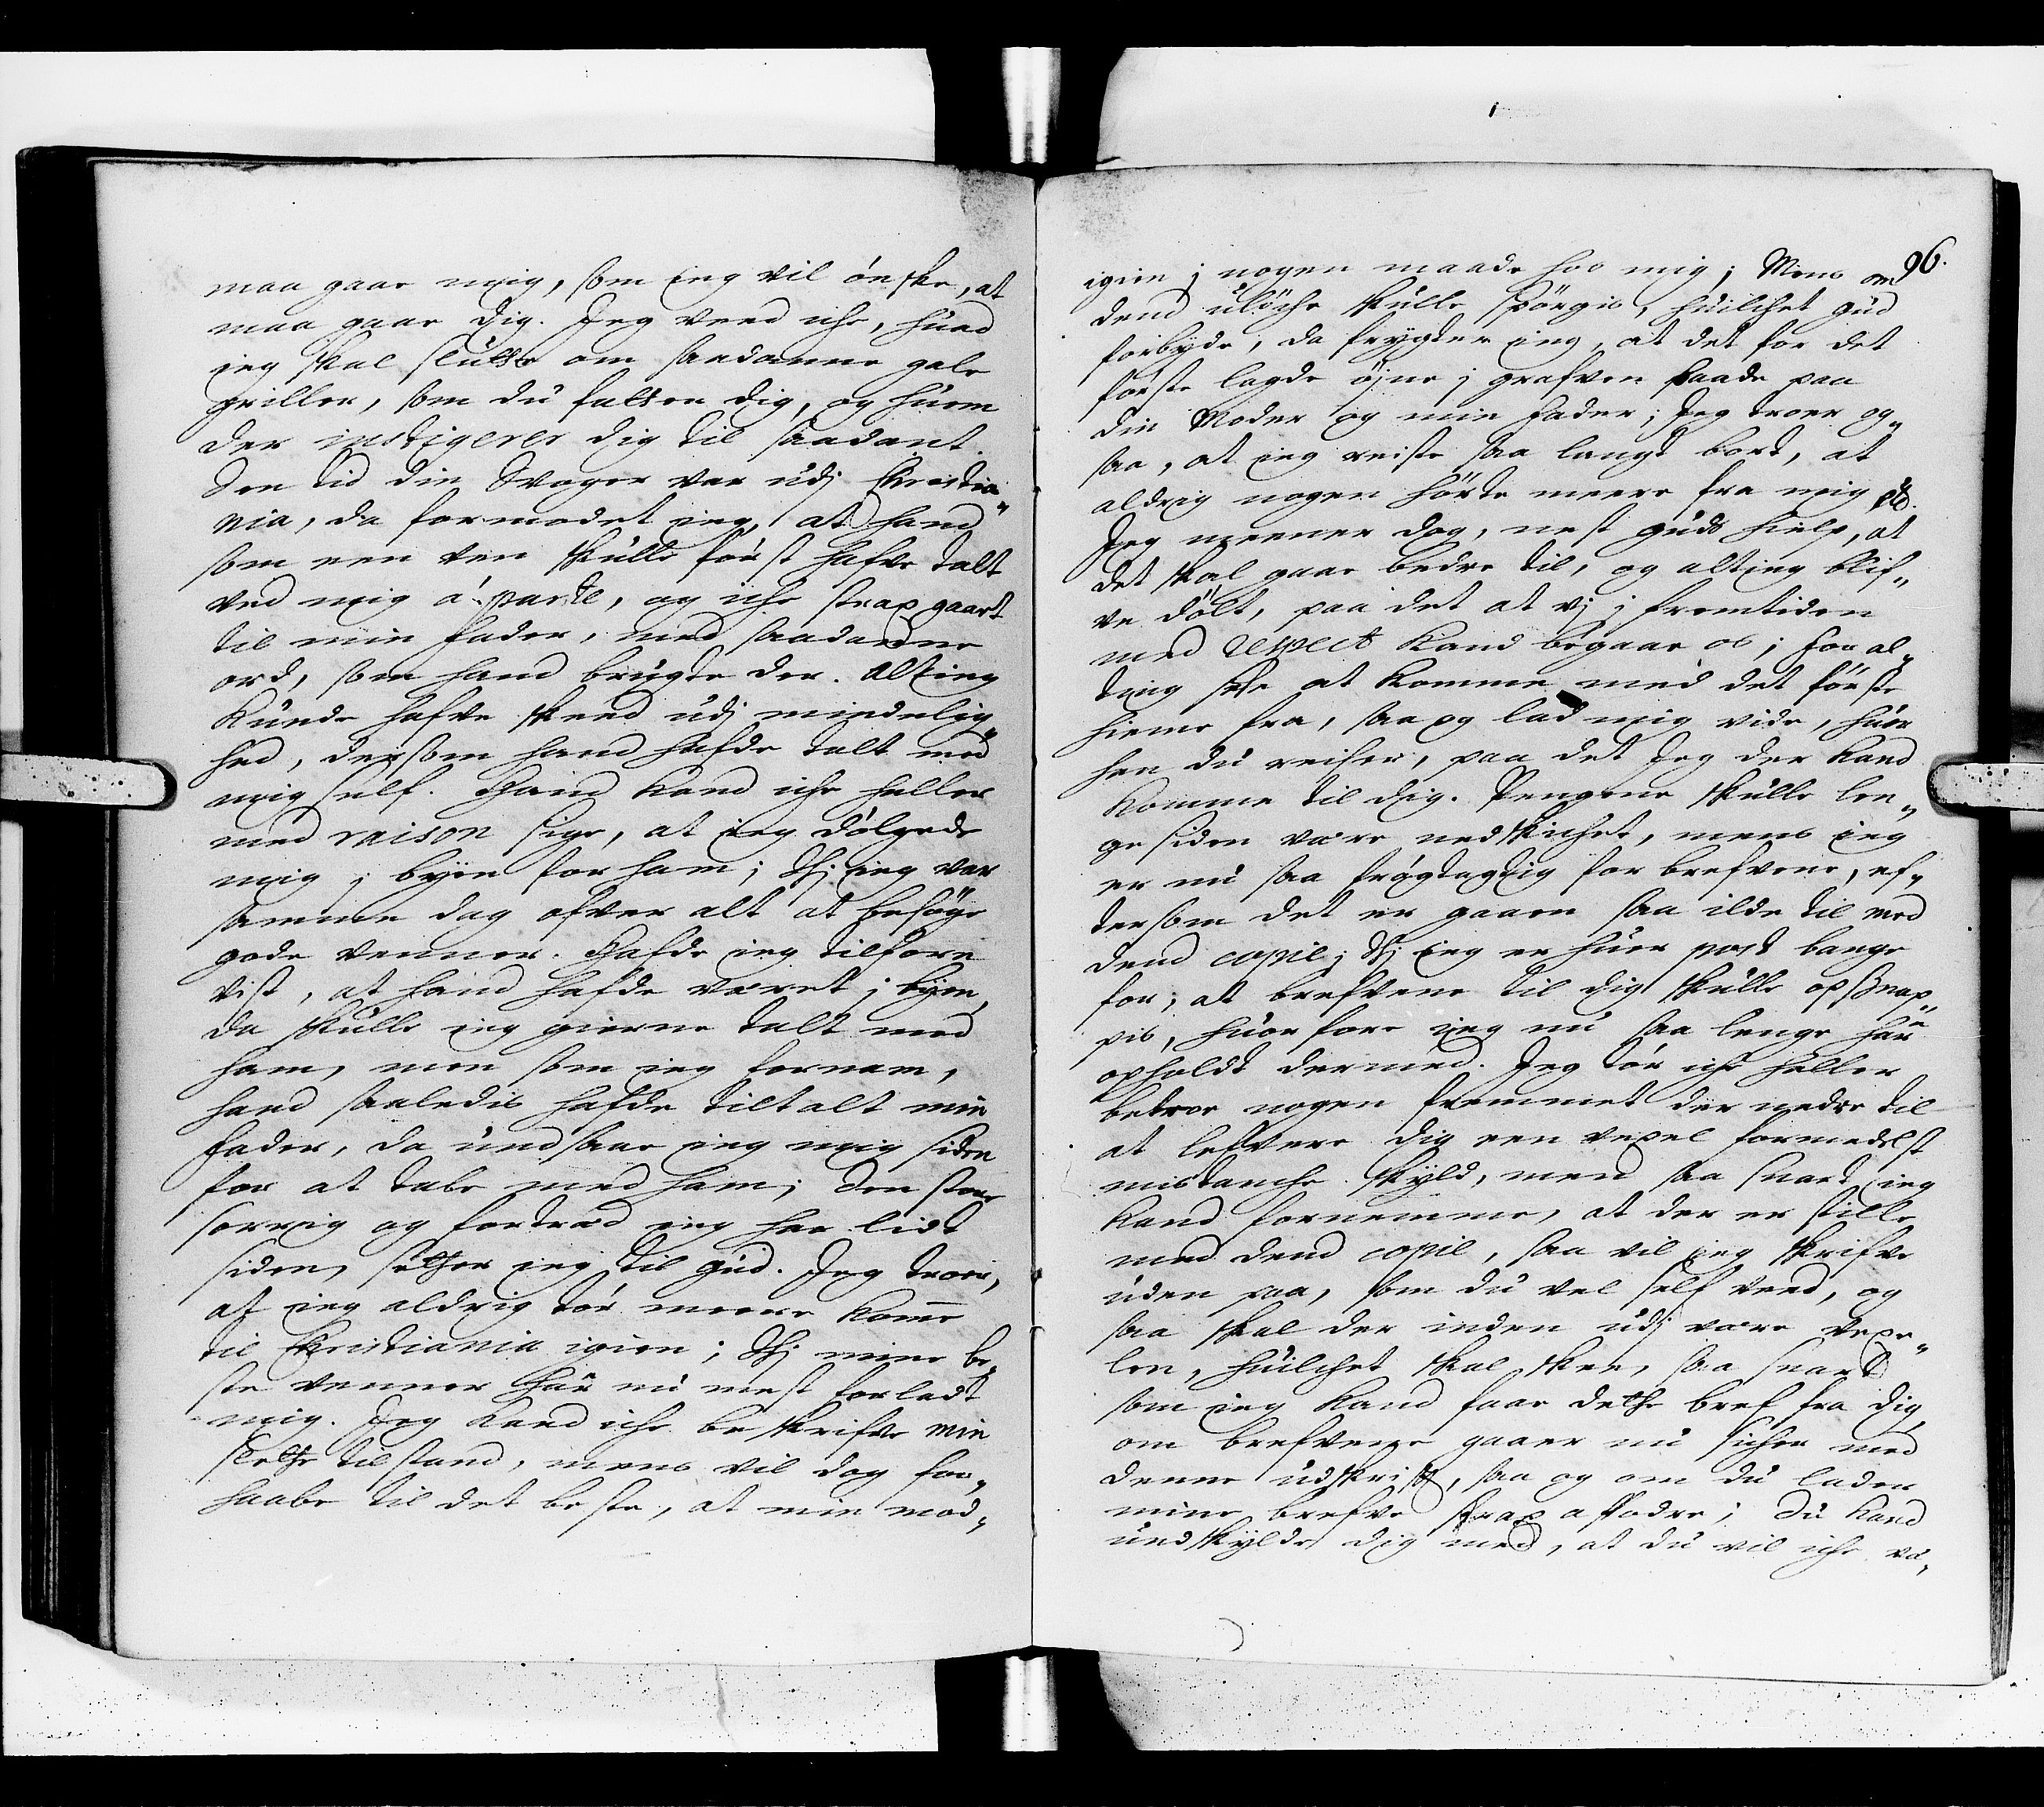 maa gaae mig, som ieg vil ønske, at
maa gaae dig. Jeg veed iche, huad
ieg skal slutte om saadanne gale
griller, som du fatter dig, og huem
der instigerer dig til saadant.
Den tid din Svoger var udj Christia„
nia, da formodet ieg, at hand
som een ven skulle først hafve talt
ved mig á parte, og iche strax gaaet
til min fader, med saadanne
ord, som hand brugte der. Alting
kunde hafve skeed udj mindelig„
hed, dersom hand hafde talt med
mig self. Hand kand iche heller
med raison sige, at ieg dølgede
mig j byen for ham; thj ieg var
samme dag ofver alt at besøge
gode venner. Hafde ieg tilforn
vist, at hand hafde været j byen,
da skulle ieg gierne talt med
ham, men som ieg fornam,
hand saaledis hafde tiltalt min
fader, da undsaae ieg mig siden
for at tale med ham; den store
sorrig og fortræd ieg har lidt
siden, setter ieg til Gud. Jeg troer,
at ieg aldrig tør meere komme
til Christiania igien; thj mine be„
ste venner har nu mest forladt
mig. Jeg kand iche beskrifve min
slette tilstand, mens vil dog for„
haabe til det beste, at min mod„
96.
igien j nogen maade hos mig; Mens om
dend uløche skulle spørgis, huilchet Gud
forbyde, da frygter ieg, at det for det
første lagde øjne j grafven baade paa
din Moder og min fader; Jeg troer og„
saa, at ieg reiste saa langt bort, at
aldrig nogen hørte meere fra mig
Jeg meener dog, nest Guds hielp, at
det skal gaae bedre til, og alting blif„
ve dølt, paa det at vj j fremtiden
med respect kand begaae os; for al„
ting see at komme med det første
hieme fra, saa og lad mig vide, huor
hen du reiser, paa det Jeg der kand
komme til dig. Pengene skulle len„
ge siden være nedskichet, mens ieg
er nu saa frøgtagtig for brefvene, ef„
tersom det er gaaen saa ilde til med
dend copie; thj ieg er huer post bange
for, at brefvene til dig skulle opsnap„
pis, huorfore ieg nu saa lenge har
opholdt dermed. Jeg tør iche heller
betroe nogen fremmet der nedre til
at lefvere dig een vexel formedelst
mistanche skyld, men saa snart ieg
kand fornemme, at der er stille
med dend copie, saa vil ieg skrifve
uden paa, som du vel self veed, og
saa skal der inden udj være vexe„
len, huilchet skal skee, saa snart
som ieg kand faae dette bref fra dig,
om brefvene gaaer nu sicher med
denne udskrift, saa og om du lader
mine brefve strax affodre; du kand
undskylde dig med, at du vil iche væ„